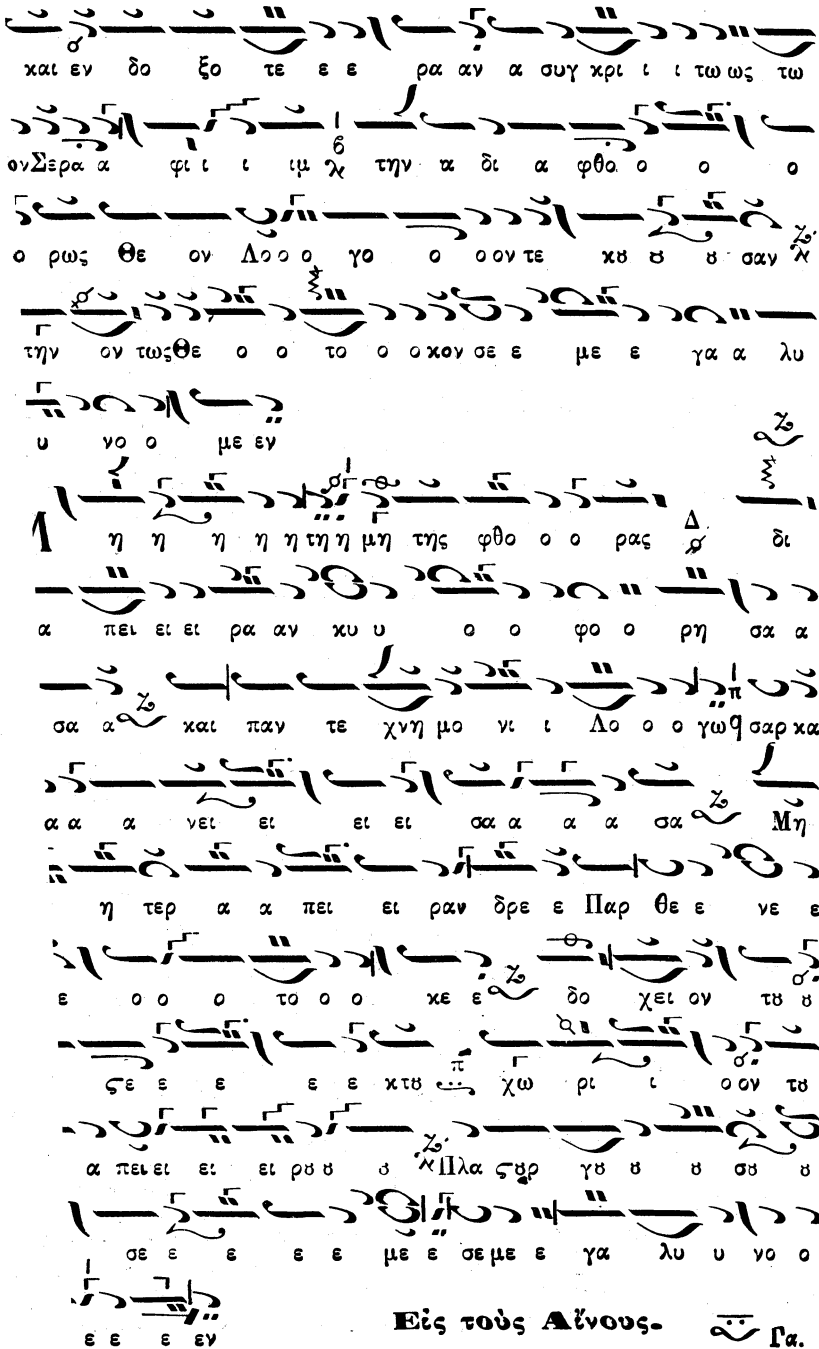 και εν δο ξο τε ε ε ρα αν α συγ κρι ι ι τω ως τω
ον Σερα α φι ι ι ιμ την α δι α φθο ο ο ο
ο ρως Θε ον Λο ο ο γο ο ο ον τε κȣ ȣ ȣ σαν
την ον τως Θε ο ο το ο ο κον σε ε με ε γα α λυ
υ νο ο με εν
η η η η η τη η μη της φθο ο ο ρας Δ δι
α πει ει ει ρα αν κυ υ ο ο φο ο ρη σα α
σα α και παν τε χνη μο νι ι Λο ο ο γω π q σαρ κα
α α α νει ει ει ει σα α α α σα Μη
η τερ α α πει ει ραν δρε ε Παρ θε ε νε ε
ε ο ο ο το ο ο κε ε δο χει ον τȣ ȣ
ϛε ε ε ε ε κτȣ π χω ρι ι ο ον τȣ
α πει ει ει ει ρȣ ȣ ȣ Πλα ϛȣρ γȣ ȣ ȣ σȣ ȣ
σε ε ε ε ε με ε σε με ε γα λυ υ νο ο
ε ε ε εν Εἰς τοὺς Αἴνους. Γα.